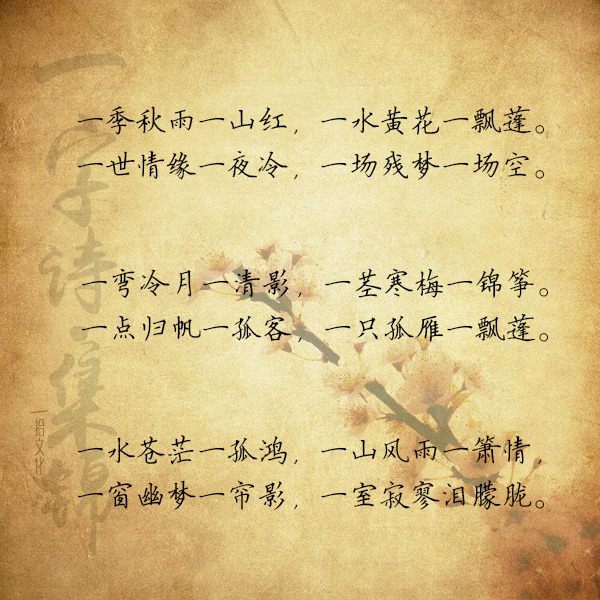 一字诗集锦
一拾文化
一季秋雨一山红，一水黄花一飘莲。
一世情缘一夜冷，一场残梦一场空。
一弯冷月一清影，一茎寒梅一锦筝。
一点归帆一孤客，一只孤雁一飘莲。
一水苍茫一孤鸿，一山风雨一箫情，
一窗幽梦一帘影，一室寂寥泪朦胧。